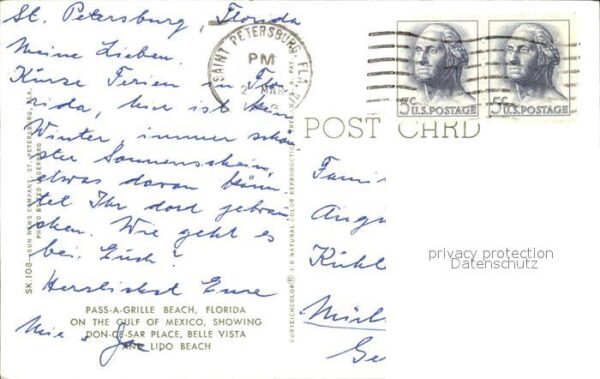 St. Petersburg, Florida
Meine Lieben.
Kurze Ferien in Flo-
rida, hier ist kein
Winter, immer schön-
ster Sonnenschein,
etwas davon könn-
tet Ihr dort gebrau-
chen. Wie geht es
bei Euch?
Herzlichst Eure
SAINT PETERSBURG, FLA.
PM
MAR
5c U.S. POSTAGE
5c U.S. POSTAGE
POST CARD
SK.108
SUN NEWS COMPANY, ST. PETERSBURG, FLA.
CURTEICHCOLOR® 3-D NATURAL COLOR REPRODUCTION
PASS-A-GRILLE BEACH, FLORIDA
ON THE GULF OF MEXICO, SHOWING
DON-CE-SAR PLACE, BELLE VISTA
AND LIDO BEACH
Fami
Kühl
privacy protection
Datenschutz